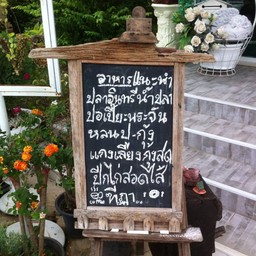 อาหารแนะนำ
ปลาอินทรีน้ำปลา
ปอเปี๊ยะพระจัน
หลนปู-กุ้ง
แกงเลียงกุ้งสด
ปีกไก่สอดไส้